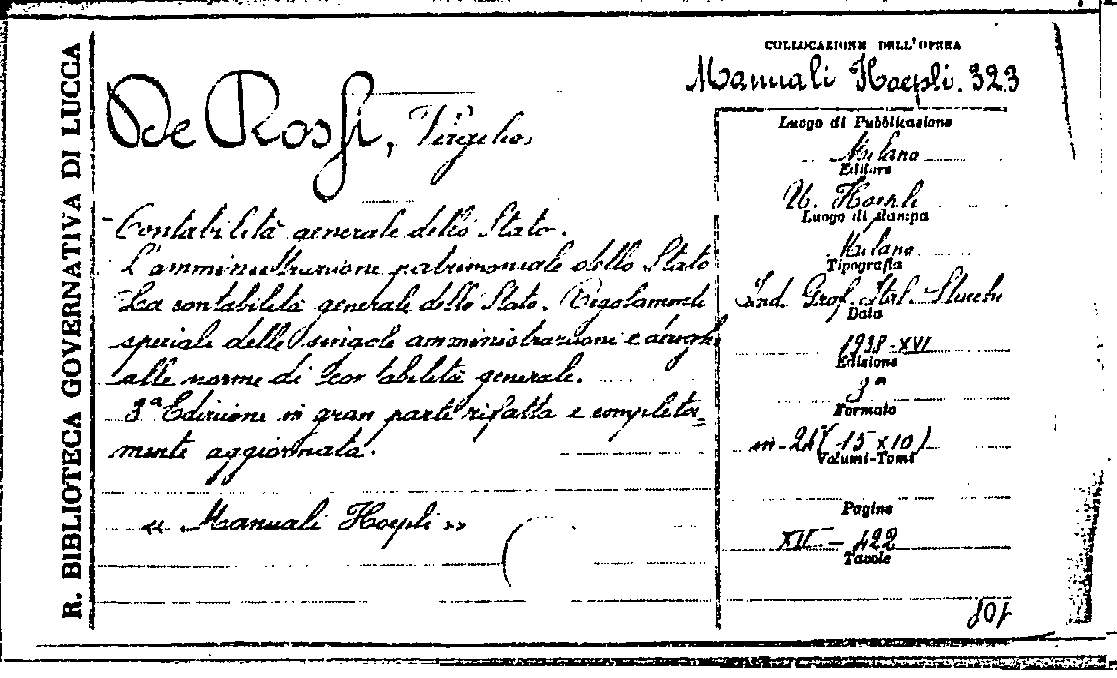 R. BIBLIOTECA GOVERNATIVA DI LUCCA
COLLOCAZIONE DELL'OPERA
Manuali Hoepli. 323
De Rossi, Virgilio
Contabilità generale dello Stato.
L'amministrazione patrimoniale dello Stato
La contabilità generale dello Stato. Regolamenti
speciale delle singole amministrazioni e
alle norme di contabilità generale.
3ª Edizione in gran parte rifatta e completa=
mente aggiornata.
« Manuali Hoepli »
Luogo di Pubblicazione
Milano
Editore
U. Hoepli
Luogo di stampa
Milano
Tipografia
Ind. Graf. Ital. Stucchi
Data
1938-XVI
Edizione
3ª
Formato
in-24 (15 x 10)
Volumi-Tomi
Pagine
XII - 422
Tavole